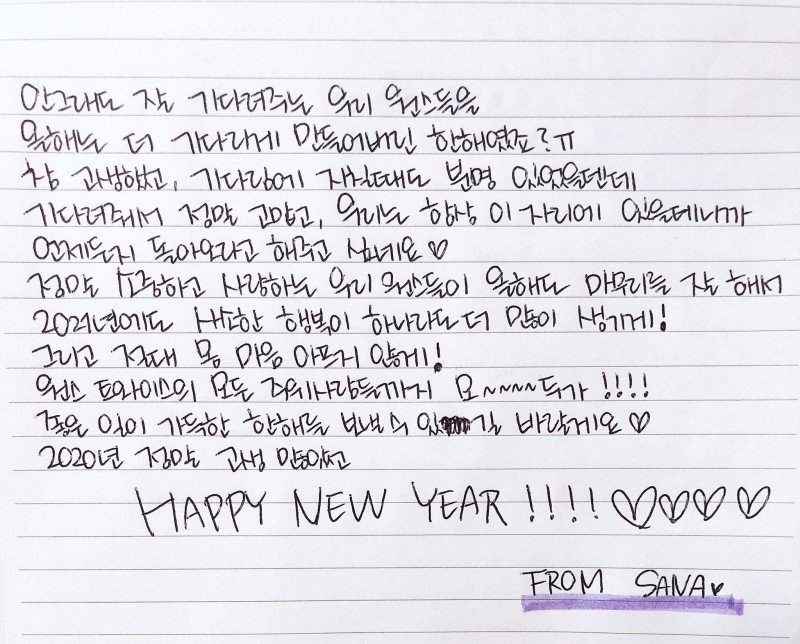 안그래도 잘 기다려주는 우리 원스들을
올해는 더 기다리게 만들어버린 한해였죠?ㅠ
참 고생했고, 기다림에 지칠때도 분명 있었을텐데
기다려줘서 정말 고맙고, 우리는 항상 이 자리에 있을테니까
언제든지 돌아오라고 해주고 싶네요♡
정말 소중하고 사랑하는 우리 원스들이 올해도 마무리를 잘 해서
2021년에도 사소한 행복이 하나라도 더 많이 생기게!
그리고 절대 몸 마음 아프지 않게!
원스 트와이스의 모든 주위사람들까지 모~~~~두가!!!!
좋은 일이 가득한 한해를 보낼 수 있길 바랄게요♡
2020년 정말 고생 많았고
HAPPY NEW YEAR!!!!♡♡♡♡
FROM SANA♥